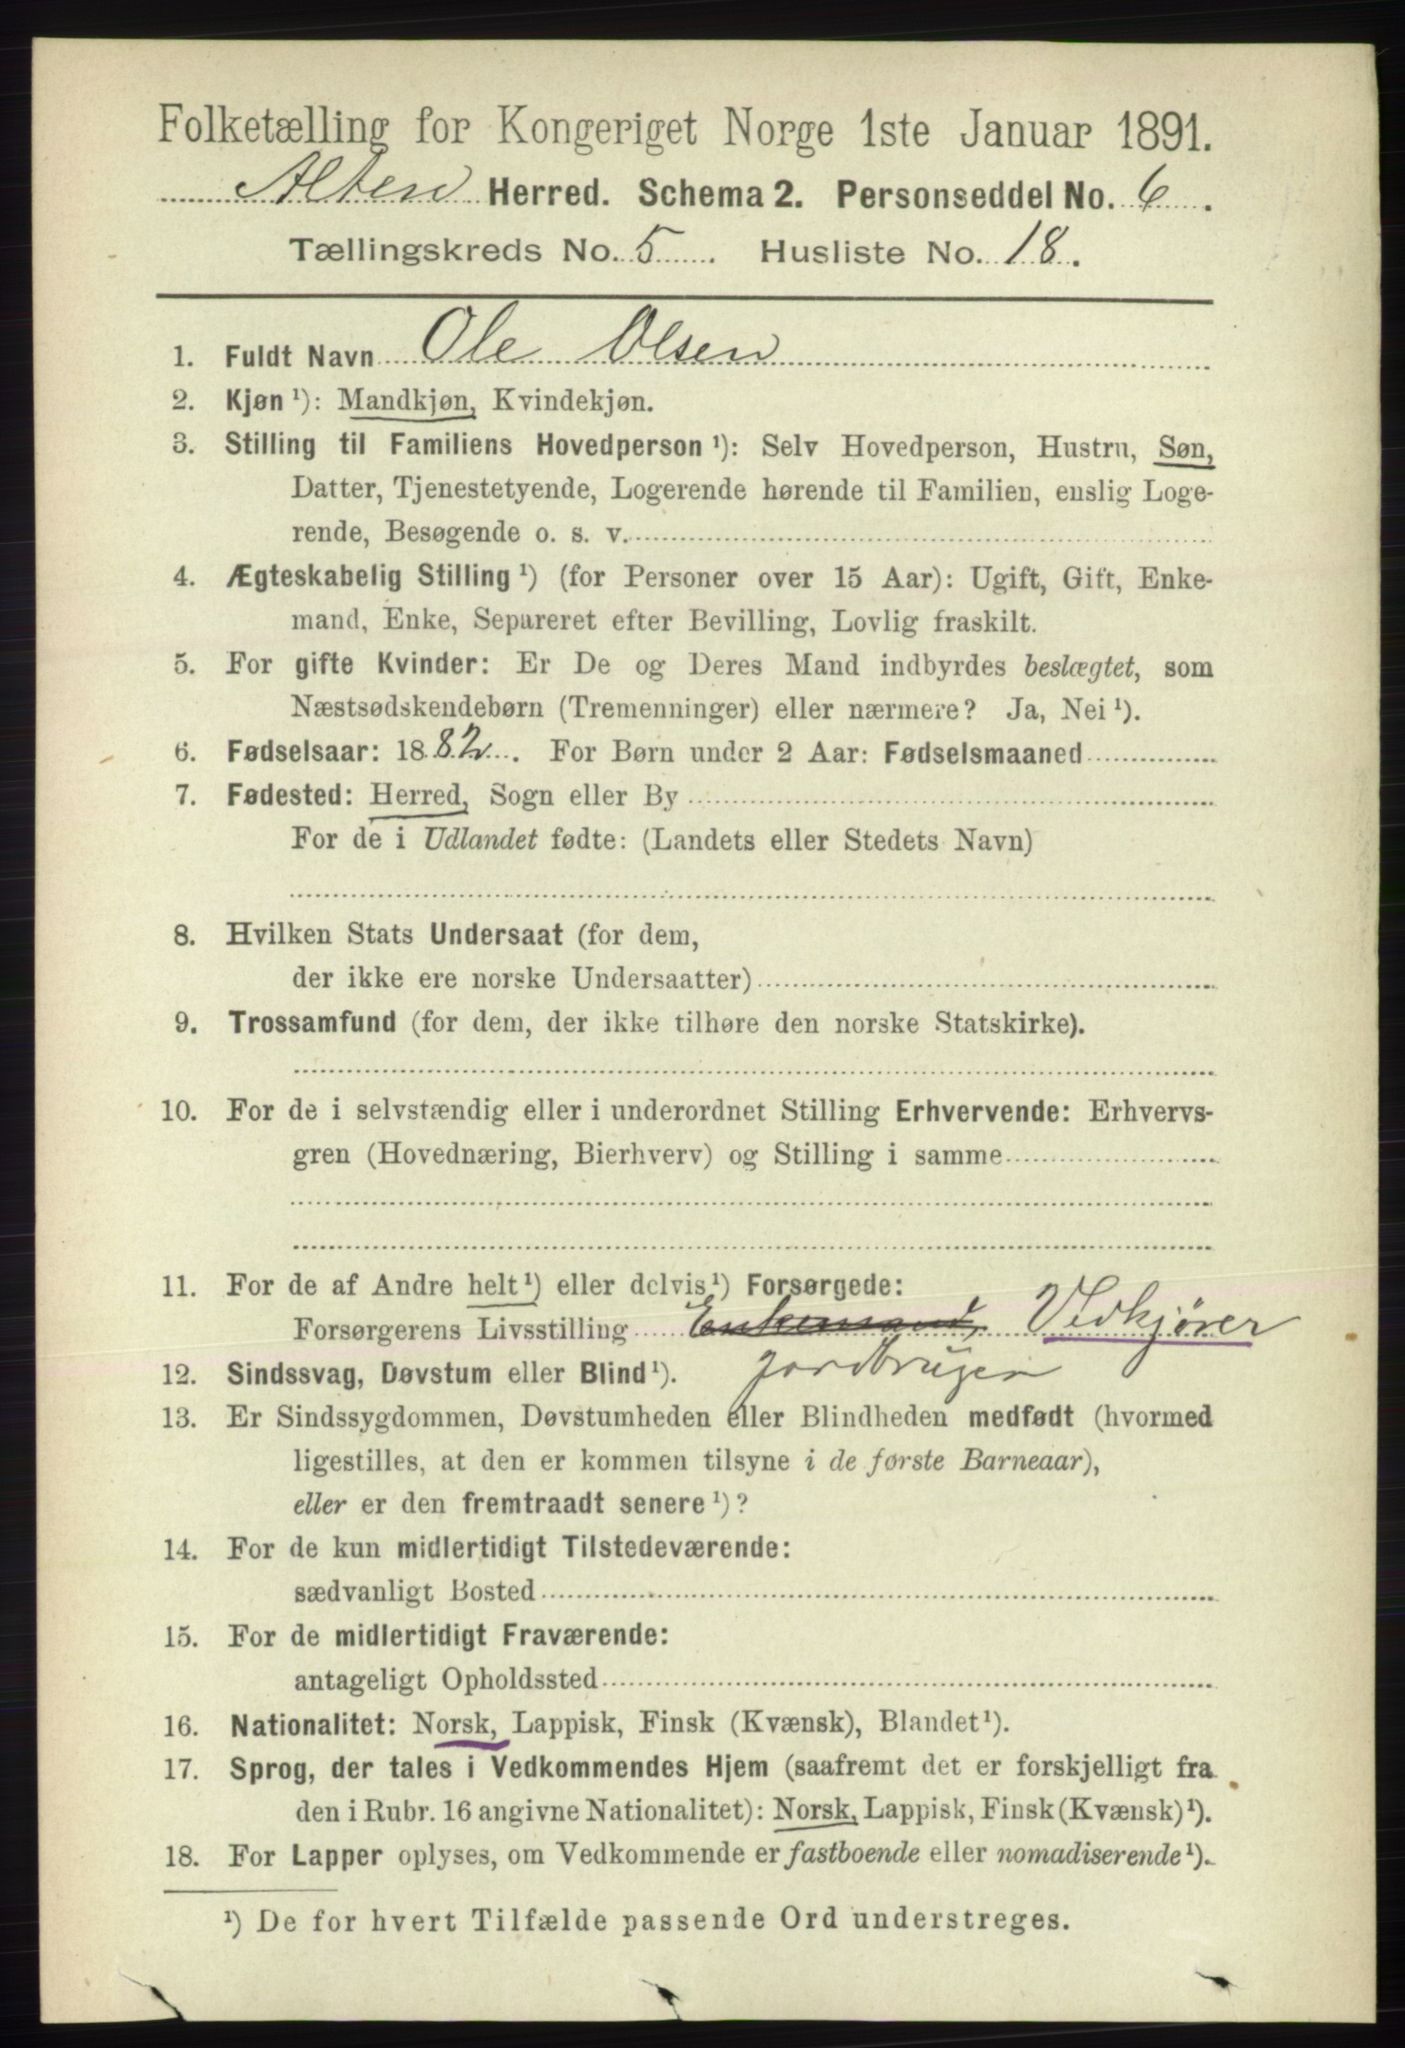 Folketælling for Kongeriget Norge 1ste Januar 1891.
Alten Herred. Schema 2. Personseddel No. 6.
Tællingskreds No. 5. Husliste No. 18.
1. Fuldt Navn Ole Olsen
2. Kjøn ¹): Mandkjøn, Kvindekjøn.
3. Stilling til Familiens Hovedperson ¹): Selv Hovedperson, Hustru, Søn,
Datter, Tjenestetyende, Logerende hørende til Familien, enslig Loge-
rende, Besøgende o. s. v.
4. Ægteskabelig Stilling ¹) (for Personer over 15 Aar): Ugift, Gift, Enke-
mand, Enke, Separeret efter Bevilling, Lovlig fraskilt.
5. For gifte Kvinder: Er De og Deres Mand indbyrdes beslægtet, som
Næstsødskendebørn (Tremenninger) eller nærmere? Ja, Nei ¹).
6. Fødselsaar: 1882. For Børn under 2 Aar: Fødselsmaaned
7. Fødested: Herred, Sogn eller By
For de i Udlandet fødte: (Landets eller Stedets Navn)
8. Hvilken Stats Undersaat (for dem,
der ikke ere norske Undersaatter)
9. Trossamfund (for dem, der ikke tilhøre den norske Statskirke).
10. For de i selvstændig eller i underordnet Stilling Erhvervende: Erhvervs-
gren (Hovednæring, Bierhverv) og Stilling i samme
11. For de af Andre helt ¹) eller delvis ¹) Forsørgede:
Forsørgerens Livsstilling Enkemand, Vedkjører
jordbruger
12. Sindssvag, Døvstum eller Blind ¹).
13. Er Sindssygdommen, Døvstumheden eller Blindheden medfødt (hvormed
ligestilles, at den er kommen tilsyne i de første Barneaar),
eller er den fremtraadt senere ¹)?
14. For de kun midlertidigt Tilstedeværende:
sædvanligt Bosted
15. For de midlertidigt Fraværende:
antageligt Opholdssted
16. Nationalitet: Norsk, Lappisk, Finsk (Kvænsk), Blandet ¹).
17. Sprog, der tales i Vedkommendes Hjem (saafremt det er forskjelligt fra
den i Rubr. 16 angivne Nationalitet): Norsk, Lappisk, Finsk (Kvænsk) ¹).
18. For Lapper oplyses, om Vedkommende er fastboende eller nomadiserende ¹).
¹) De for hvert Tilfælde passende Ord understreges.